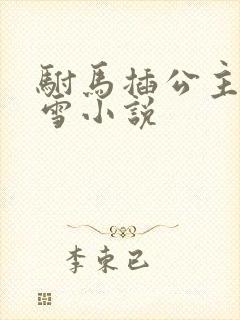 駙馬插公主
雪小說
李東已